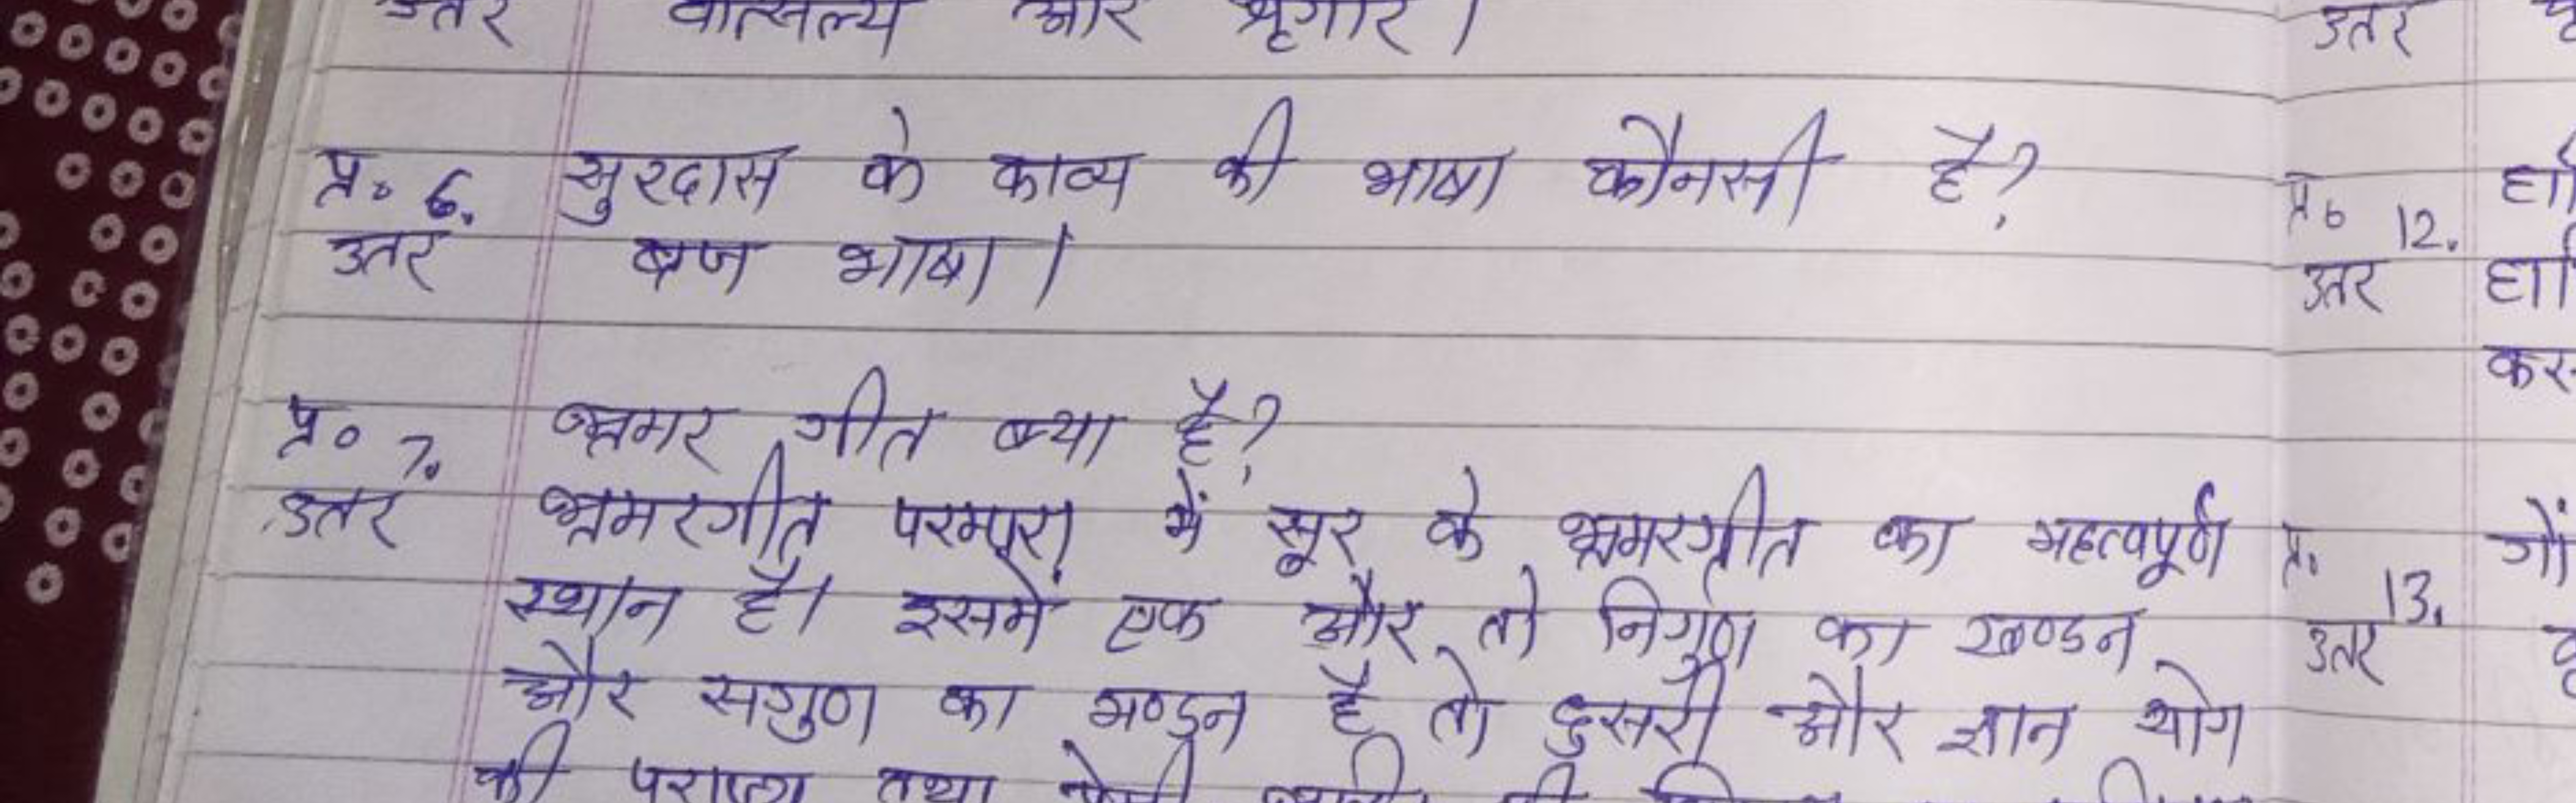 उतर वात्सल्य और श्रृंगार।
प्र० 6. सुरदास के काव्य की भाषा कौनसी है?
उतर ब्रज भाषा।
प्र० 7. भ्रमर गीत क्या है?
उतर भ्रमरगीत परम्परा में सूर के भ्रमरगीत का महत्वपूर्ण
स्थान है। इसमें एक और तो निर्गुण का खण्डन
और सगुण का मण्डन है तो दुसरी और ज्ञान योग
की पराजय तथा
उतर
प्र० 12.
उतर
कर
प्र. 13.
उतर